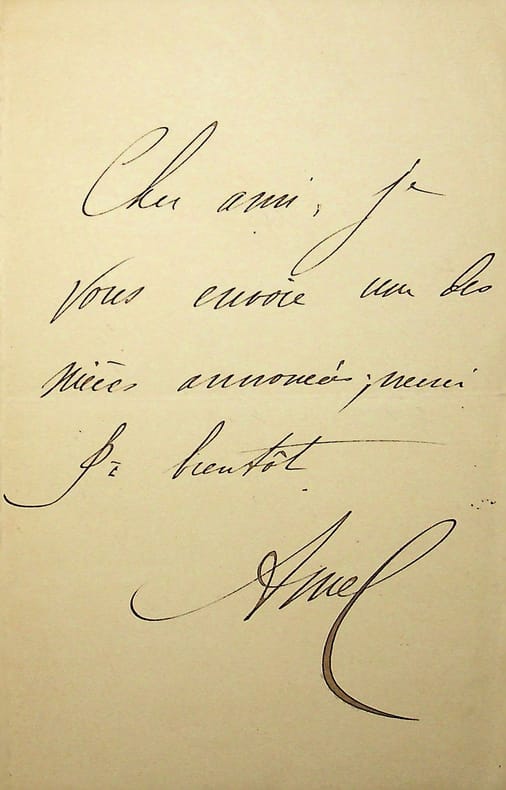 Cher ami, je
vous envoie une des
nièces annoncées; merci
bientôt
Amel